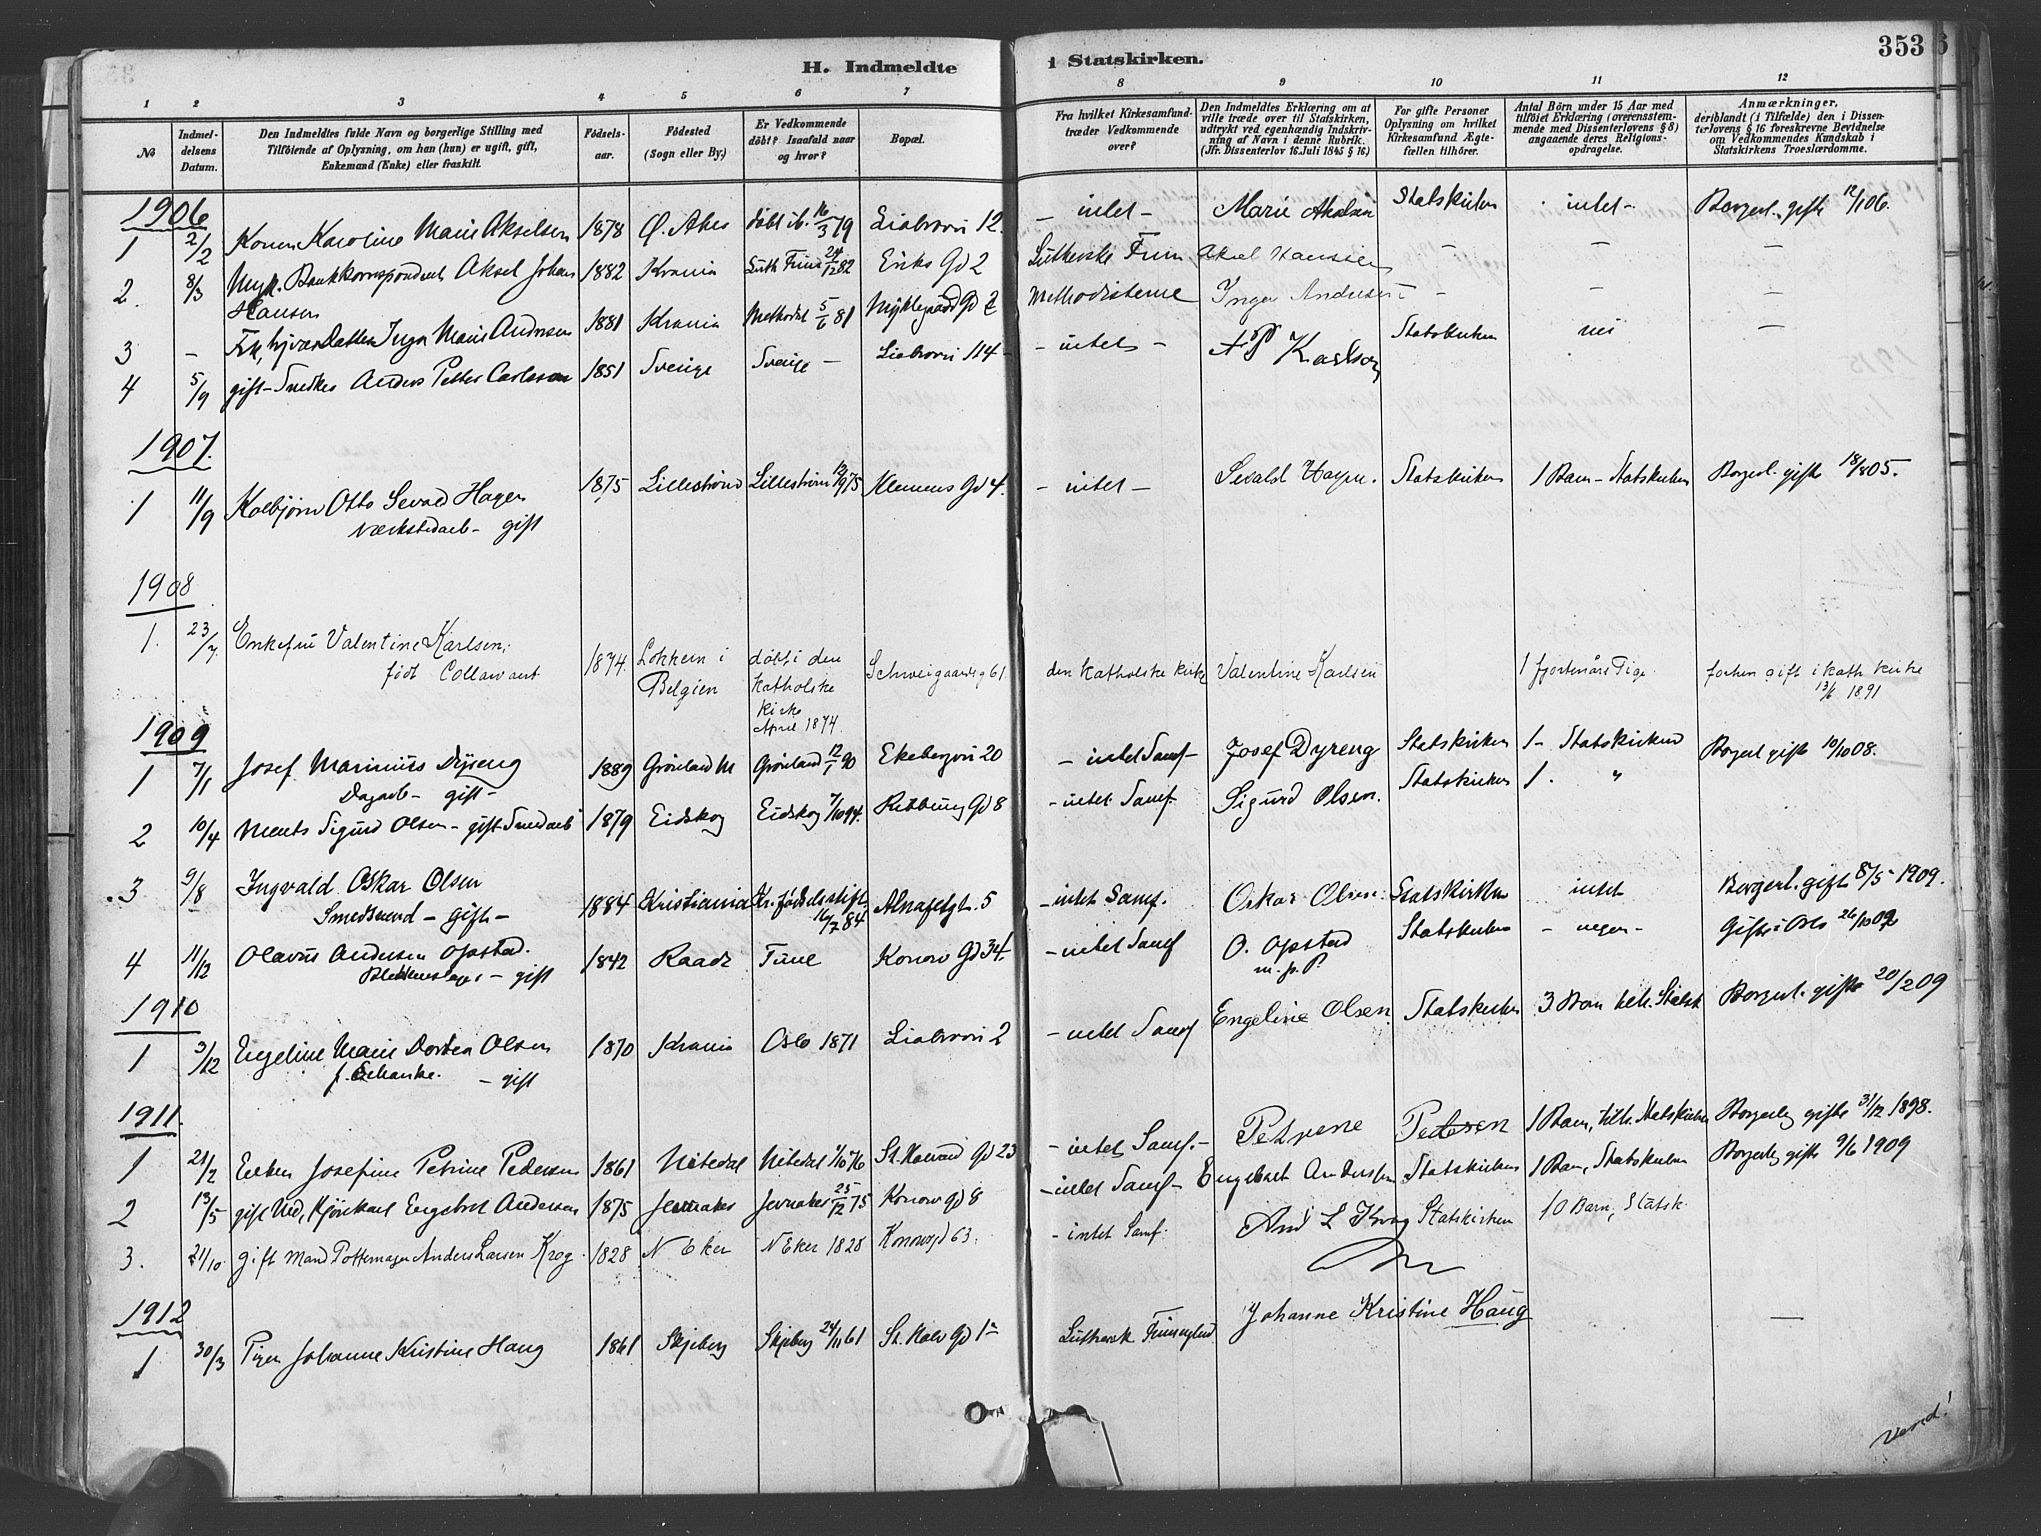 H. Indmeldte i Statskirken. 353
1 2 3 4 5 6 7 8 9 10 11 12
№
Indmeldelsens Datum.
Den Indmeldtes fulde Navn og borgerlige Stilling med
Tilföiende af Oplysning, om han (hun) er ugift, gift,
Enkemand (Enke) eller fraskilt.
Födsels-
aar.
Födested
(Sogn eller By.)
Er Vedkommende
döbt? Isaafald naar
og hvor?
Bopæl.
Fra hvilket Kirkesamfund
træder Vedkommende
over?
Den Indmeldtes Erklæring om at
ville træde over til Statskirken,
udtrykt ved egenhændig Indskriv-
ning af Navn i denne Rubrik.
(Jfr. Dissenterlov 16. Juli 1845 § 16.)
For gifte Personer
Oplysning om hvilket
Kirkesamfund Ægte-
fællen tilhörer.
Antal Börn under 15 Aar med
tilföiet Erklæring (overensstem-
mende med Dissenterlovens § 8)
angaaende deres Religions-
opdragelse.
Anmærkninger,
deriblandt (i Tilfælde) den i Dissen-
terlovens § 16 foreskrevne Bevidnelse
om Vedkommendes Kundskab i
Statskirkens Troeslærdomme.
1906
1 2/2 Konen Karoline Marie Akselsen 1878 Ø. Aker döbt ib. 16/3 79 Liabrovei 12. – intet – Marie Akselsen Statskirken intet – Borgerl. gifte 12/1 06.
2. 8/3 Ungk. Bankkorrespondent Aksel Johan 1882 Krania Luth Frim 24/12 82 Eriks Gd 2 Lutherske Frim Aksel Hanssen – – –
Hansen
3 – Frk, Inga Marie Andresen 1881 Krania Methodist 5/6 81 Nyklegaards Gd 2 Methodisterne Inga Andresen – – –
4 5/9 gift – Snedker Anders Petter Carlsson 1851 Sverige Sverige – Liabrovei 114 – – intet – A P Karlson Statskirken nei –
1907.
1 11/9 Kolbjørn Otto Sevald Hagen 1875 Lillestrøm Lillestrøm 12/9 75 Klemens Gd 4. – intet – Sevald Hagen. Statskirken 1 Barn – Statskirken Borgerl. gifte 18/8 05.
værkstedarb – gift
1908
1. 23/7. Enkefru Valentine Karlsen, 1874. Lokkern i døbt i den Schweigaardsg 61. den katholske kirke Valentine Karlsen 1 fjortenårs Pige forhen gift i kath kirke
født Collawaert Belgien Katholske 13/6 1891
Kirke
April 1874.
1909
1 7/1 Josef Marinius Dyreng 1889 Grønland M Grønland 12/1 90 Ekebergvei 20 – intet Samf – Josef Dyreng Statskirken 1 – Statskirken Borgerl gifte 10/10 08.
Dagarb – gift –
2 10/4 Ments Sigurd Olsen – gift Smedarb 1879 Eidskog Eidskog 7/10 94. Gd 8 – intet Samf. Sigurd Olsen. Statskirken 1. "
3 9/8 Ingvald Oskar Olsen 1884 Kristiania Kr. fødselsstift. Alnafetgt. 5 – intet Samf. Oskar Olsen Statskirken intet Borgerl. gifte 8/5 1909.
Smedsvend – gift – 16/7 84
4 11/12 Olavus Andersen Opstad. 1842 Raade Tune Konow Gd 34. – intet Samf O. Opstad Statskirken – ingen – Gifte i Oslo 26/10 09
Blikkenslager – gift m. p. P.
1910
1 3/12 Engeline Marie Dortea Olsen 1870 Krania Oslo 1871 Liabrovei 2 – intet Samf Engeline Olsen. Statskirken 3 Barn tilh. Statsk Borgerl. gifte 20/2 09
f. Schanke. – gift
1911.
1 21/2 Enken Josefine Petrine Pedersen 1861 Nitedal Nitedal 1/10 76 St. Halvard Gd 23 – intet Samf. – Petrene Pedersen 1 Barn, tilh. Statskirken Borgerlig gifte 31/12 1898.
2 13/5 gift Ved, Kjørekarl Engebret Andersen 1875 Jevnaker Jevnaker 25/12 75 Konow gd 8 – intet Samf – Engebret Andersen Statskirken 1 Barn, Statskirken Borgerlig gifte 9/6 1909
3. 21/10. gift mand Pottemager Anders Larsen Krog 1828 N Eker N Eker 1828 Konowgd 63. – intet Samf. And L Krog Statskirken 10 Barn, Statsk.
1912
1 30/3 Pigen Johanne Kristine Haug 1861 Skjeberg Skjeberg 24/11 61 St. Halv Gd 1a Luthersk Frimenighed Johanne Kristine Haug –
Vend!